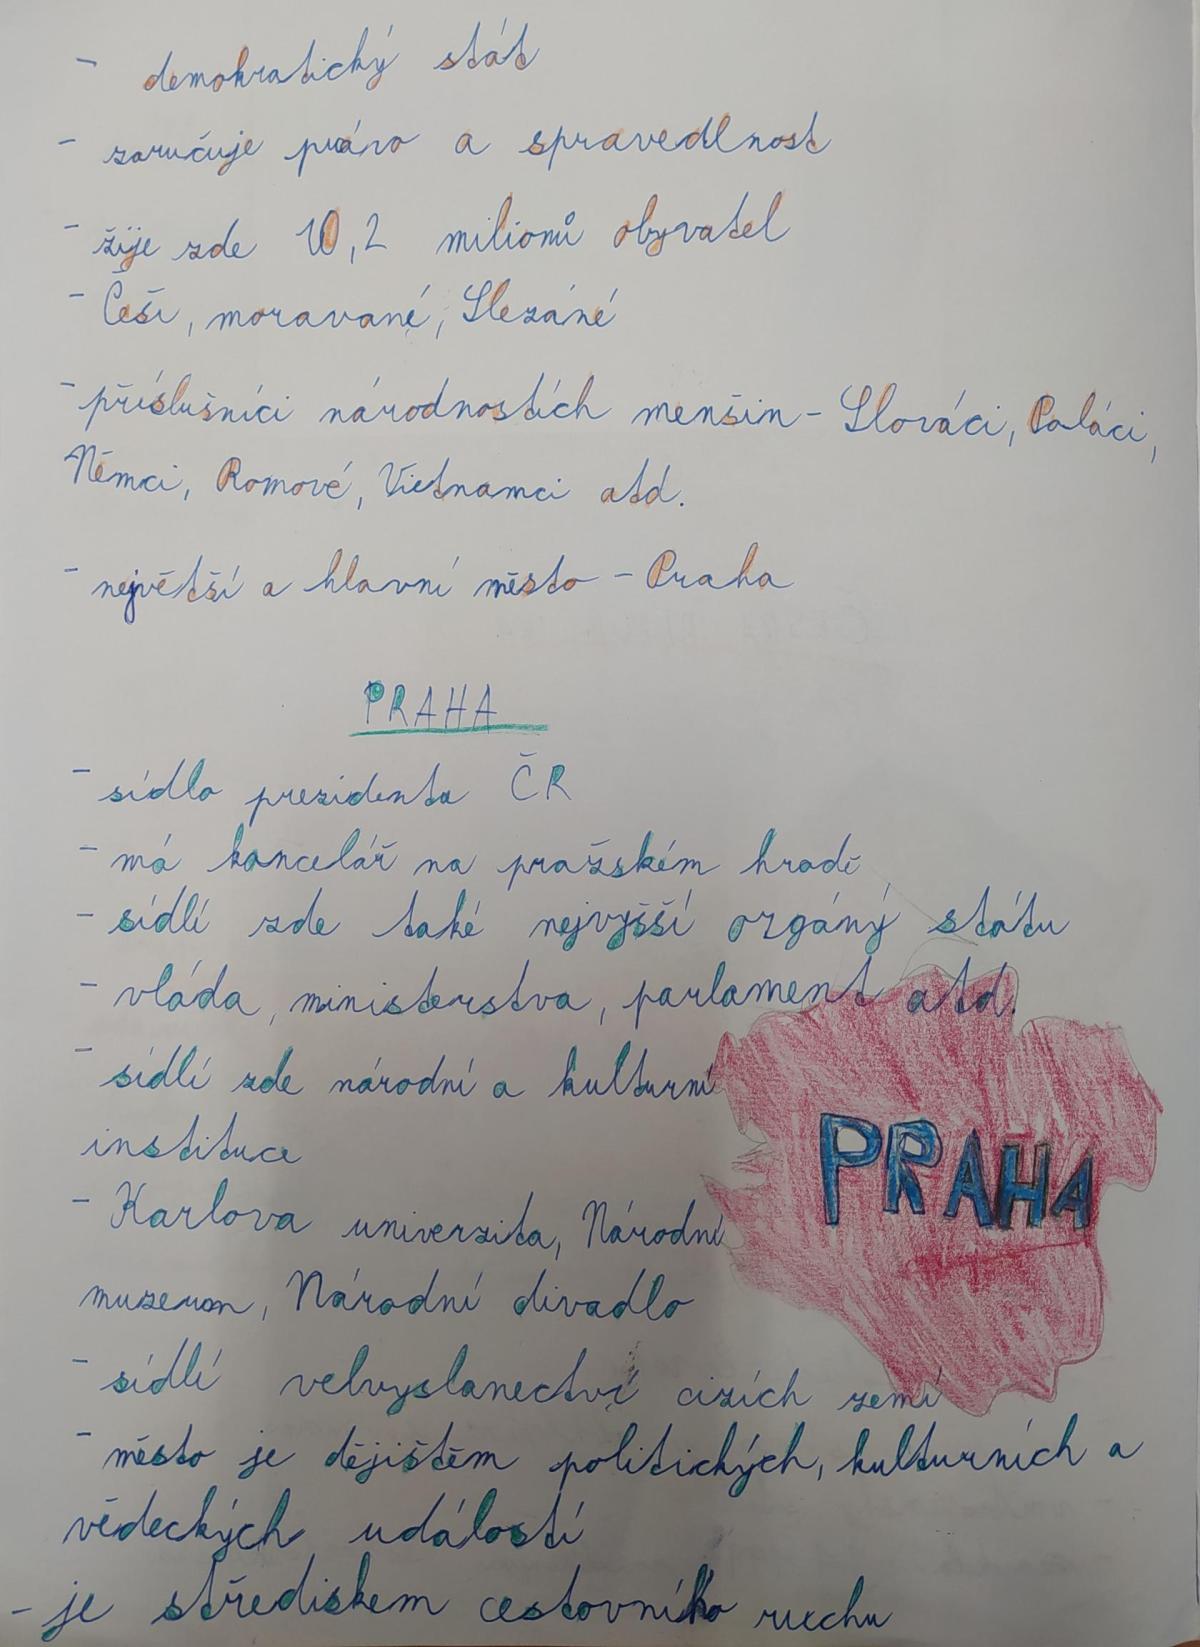 - demokratický stát
- zaručuje právo a spravedlnost
- žije zde 10,2 milionů obyvatel
- Češi, moravané, Slezáné
- příslušníci národnostích menšin - Slováci, Poláci,
Němci, Romové, Vietnamci atd.
- největší a hlavní město - Praha
PRAHA
- sídlo prezidenta ČR
- má kancelář na pražském hradě
- sídlí zde také nejvyšší orgány státu
- vláda, ministerstva, parlament atd.
- sídlí zde národní a kulturní
instituce
- Karlova univerzita, Národní
muzeum, Národní divadlo
PRAHA
- sídlí velvyslanectví cizích zemí
- město je dějištěm politických, kulturních a
vědeckých událostí
- je střediskem cestovního ruchu